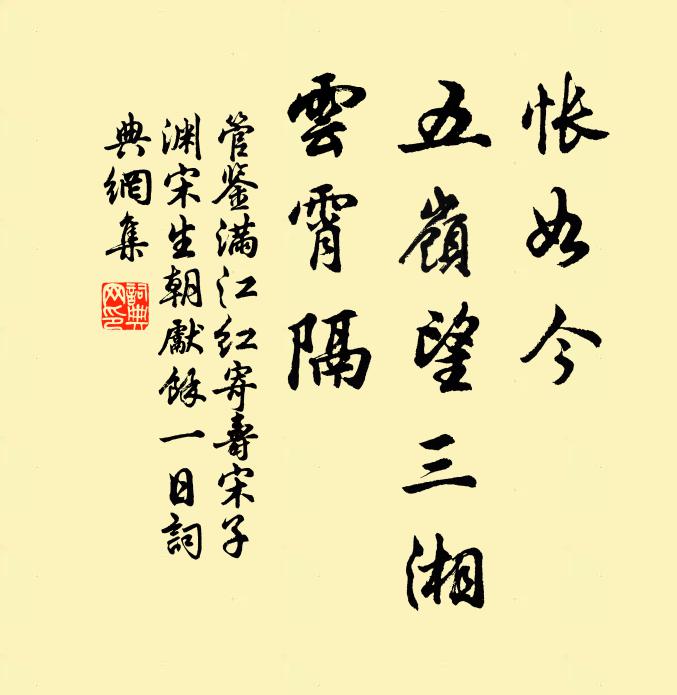 悵如今
五嶺望三湘
雲霄隔
管鉴滿江红寄壽宋子
渊宋生朝獻餘一日詞
典網集
詞典
网印